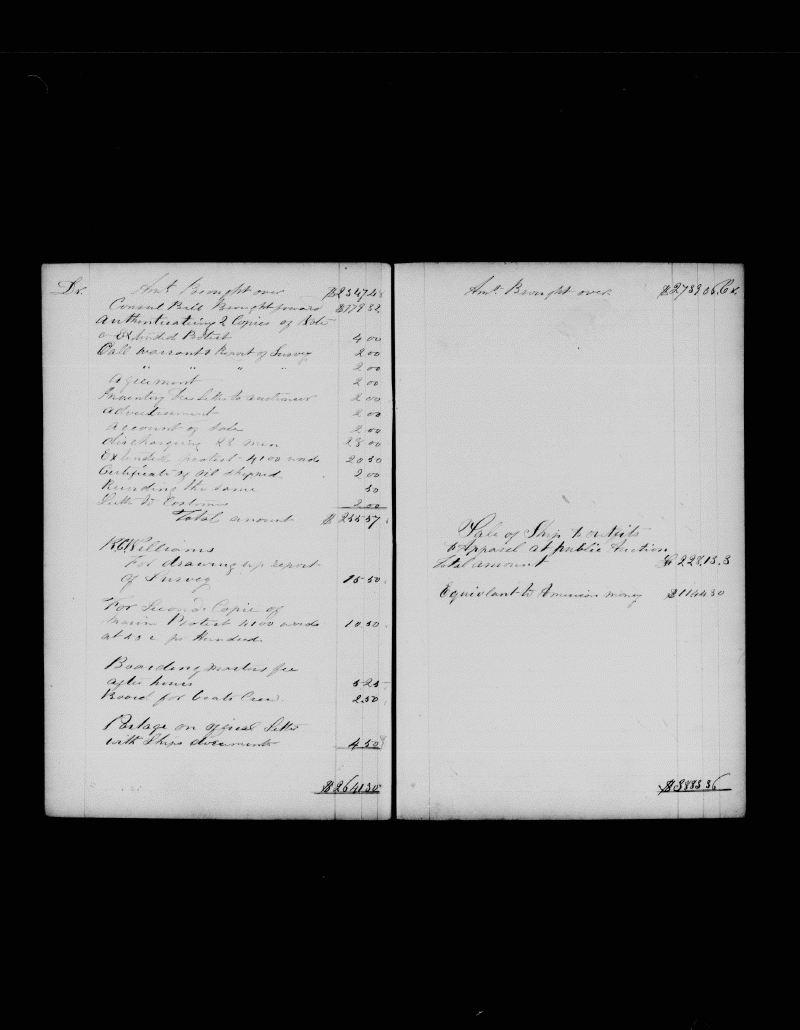 Dr. Amt Brought over $23474
Consul Bill Brought forward $179 52
Authenticating 2 Copies of
& Extended Protest 4 00
Call warrants Report of Survey 2 00
" " " " 2 00
Agreement 2 00
Fee Letter to auctioneer 2 00
Advertisement 2 00
Account of Sale 2 00
discharging 28 men 28 00
Extended protest 4100 words 20 50
Certificate of oil shipped 2 00
Recording the same 50
Letter to Customs 2 00
Total amount $ 255 57
Williams
For drawing up report
of Survey 15 50
For Second Copie of
Marin Protest 4100 words 10 50
at 25 c per Hundred
Boarding masters fee
after hours 5 25
Board for boats Crew 2 50
Postage on Letter
with Ships documents 4 50
$264130
Amt. Brought over $2739 06 Cr.
Sale of Ship & outfits
& Apparel at public Auction
Total amount 228.13.3
Equivlant to American money $1144 30
$3883 36